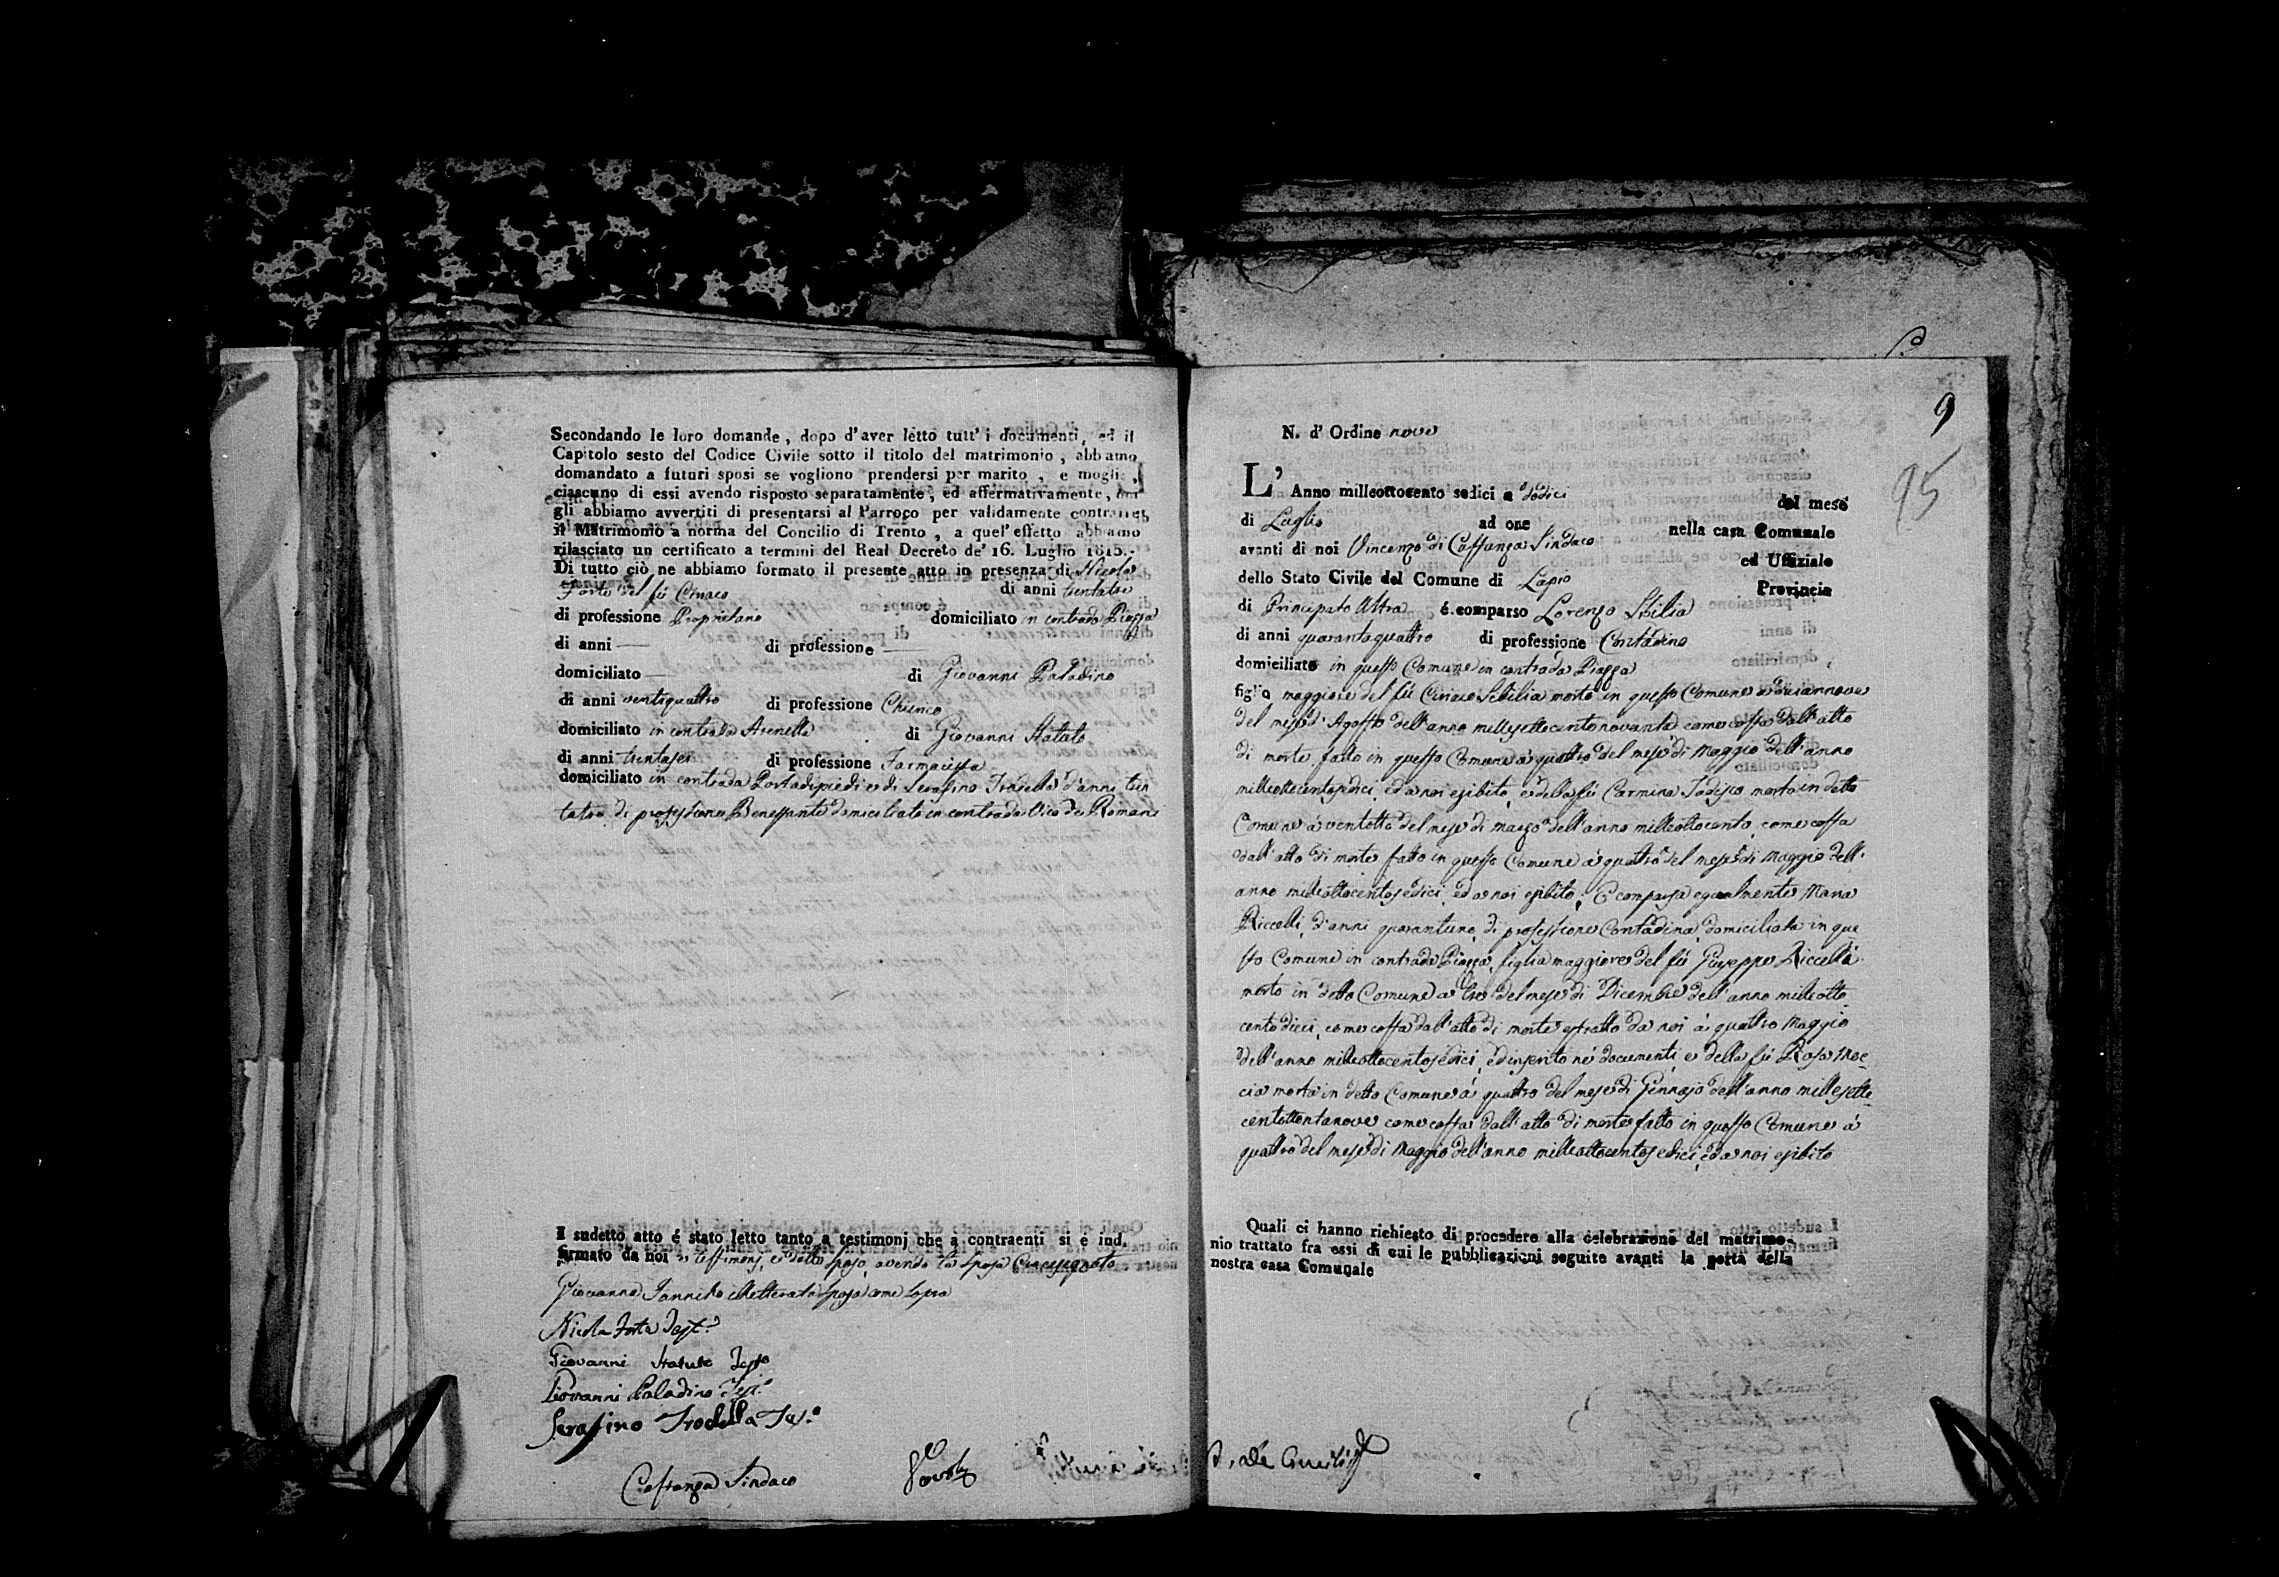 Secondando le loro domande, dopo d'aver letto tutt' i documenti, ed il
Capitolo sesto del Codice Civile sotto il titolo del matrimonio, abbiamo
domandato a futuri sposi se vogliono prendersi per marito, e moglie,
ciascuno di essi avendo risposto separatamente, ed affermativamente, noi
gli abbiamo avvertiti di presentarsi al Parroco per validamente contrarre
il Matrimonio a norma del Concilio di Trento, a quel' effetto abbiamo
rilasciato un certificato a termini del Real Decreto de' 16. Luglio 1815.
Di tutto ciò ne abbiamo formato il presente atto in presenza di Nicola
Forte del fù Ciriaco di anni trentatre
di professione Proprietario domiciliato in contrada Piazza
di anni — di professione —
domiciliato — di Giovanni Paladino
di anni ventiquattro di professione
domiciliato in contrada Arenella di Giovanni Statuto
di anni trentasei di professione Farmacista
domiciliato in contrada Portadipiedi e di Serafino Trodella d'anni tren
tatre di professione Benestante domiciliato in contrada Vico de Romani
I sudetto atto é stato letto tanto a testimonj che a contraenti si é ind.
firmato da noi e testimonj, e dallo sposo, avendo la sposa Crocesignato
Giovanna illetterata sposa come sopra
Nicola Forte Test.o
Giovanni Statuto Testo
Giovanni Paladino Test.o
Serafino Trodella Tes.o
Cossanza Sindaco
9
95
N. d' Ordine nove
L' Anno milleottocento sedici a dodici del mese
di Luglio ad ore nella casa Comunale
avanti di noi Vincenzo di Cossanza Sindaco ed Uffiziale
dello Stato Civile del Comune di Lapio Provincia
di Principato Ultra é comparso Lorenzo Sibilia
di anni quarantaquattro di professione Contadino
domiciliato in questo Comune in contrada Piazza
figlio maggiore del fù Ciriaco Sibilia morto in questo Comune a diciannove
del mese d' Agosto dell'anno millesettecentonovanta come costa dall'atto
di morte fatto in questo Comune à quattro del mese di Maggio dell'anno
milleottocentosedici, ed a noi esibito, e della fù Carmina Todisco morta in detto
Comune à ventotto del mese di marzo dell'anno milleottocento, come costa
dall'atto di morte fatto in questo Comune à quattro del mese di Maggio dell'
anno milleottocentosedici, ed a noi esibito; E comparsa egualmente Maria
Riccelli, d'anni quarantuno, di professione Contadina, domiciliata in que
sto Comune in contrada Piazza, figlia maggiore del fù Giuseppe Riccelli
morto in detto Comune a tre del mese di Dicembre dell'anno milleotto
cento dieci, come costa dall'atto di morte estratto da noi à quattro Maggio
dell'anno milleottocentosedici, ed inserito ne' documenti, e della fù Rosa
morta in detto Comune à quattro del mese di Gennajo dell'anno millesette
centottantanove come costa dall'atto di morte fatto in questo Comune à
quattro del mese di Maggio dell'anno milleottocentosedici, ed a noi esibito
Quali ci hanno richiesto di procedere alla celebrazione del matrimo-
nio trattato fra essi di cui le pubblicazioni seguite avanti la porta della
nostra casa Comunale